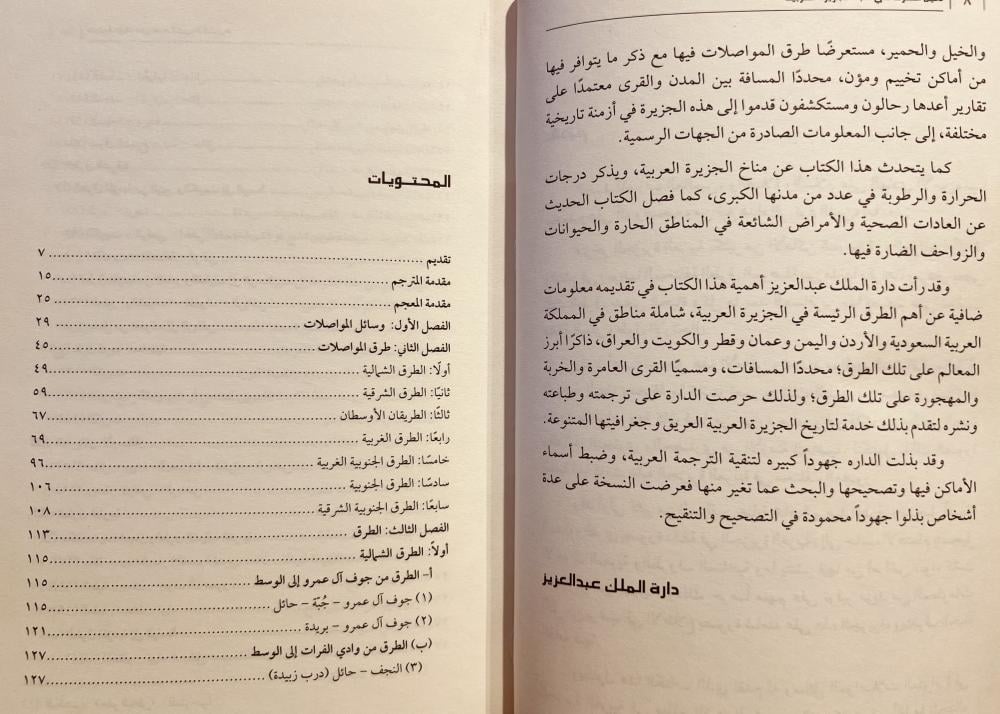 ٨
والخيل والحمير، مستعرضًا طرق المواصلات فيها مع ذكر ما يتوافر فيها
من أماكن تخييم ومؤن، محددًا المسافة بين المدن والقرى معتمدًا على
تقارير أعدها رحالون ومستكشفون قدموا إلى هذه الجزيرة في أزمنة تاريخية
مختلفة، إلى جانب المعلومات الصادرة من الجهات الرسمية.
كما يتحدث هذا الكتاب عن مناخ الجزيرة العربية، ويذكر درجات
الحرارة والرطوبة في عدد من مدنها الكبرى، كما فصل الكتاب الحديث
عن العادات الصحية والأمراض الشائعة في المناطق الحارة والحيوانات
والزواحف الضارة فيها.
وقد رأت دارة الملك عبدالعزيز أهمية هذا الكتاب في تقديمه معلومات
ضافية عن أهم الطرق الرئيسة في الجزيرة العربية، شاملة مناطق في المملكة
العربية السعودية والأردن واليمن وعمان وقطر والكويت والعراق، ذاكرًا أبرز
المعالم على تلك الطرق؛ محددًا المسافات، ومسميًا القرى العامرة والخربة
والمهجورة على تلك الطرق؛ ولذلك حرصت الدارة على ترجمته وطباعته
ونشره لتقدم بذلك خدمة لتاريخ الجزيرة العربية العريق وجغرافيتها المتنوعة.
وقد بذلت الداره جهوداً كبيره لتنقية الترجمة العربية، وضبط أسماء
الأماكن فيها وتصحيحها والبحث عما تغير منها فعرضت النسخة على عدة
أشخاص بذلوا جهوداً محمودة في التصحيح والتنقيح.
دارة الملك عبدالعزيز
المحتويات
تقديم ........ ٧
مقدمة المترجم ........ ١٥
مقدمة المعجم ........ ٢٥
الفصل الأول: وسائل المواصلات ........ ٢٩
الفصل الثاني: طرق المواصلات ........ ٤٥
أولًا: الطرق الشمالية ........ ٤٩
ثانيًا: الطرق الشرقية ........ ٥٩
ثالثًا: الطريقان الأوسطان ........ ٦٧
رابعًا: الطرق الغربية ........ ٦٩
خامسًا: الطرق الجنوبية الغربية ........ ٩٦
سادسًا: الطرق الجنوبية ........ ١٠٦
سابعًا: الطرق الجنوبية الشرقية ........ ١٠٨
الفصل الثالث: الطرق ........ ١١٣
أولاً: الطرق الشمالية ........ ١١٥
أ- الطرق من جوف آل عمرو إلى الوسط ........ ١١٥
(١) جوف آل عمرو - جُبّة - حائل ........ ١١٥
(٢) جوف آل عمرو - بريدة ........ ١٢١
(ب) الطرق من وادي الفرات إلى الوسط ........ ١٢٧
(٣) النجف - حائل (درب زبيدة) ........ ١٢٧